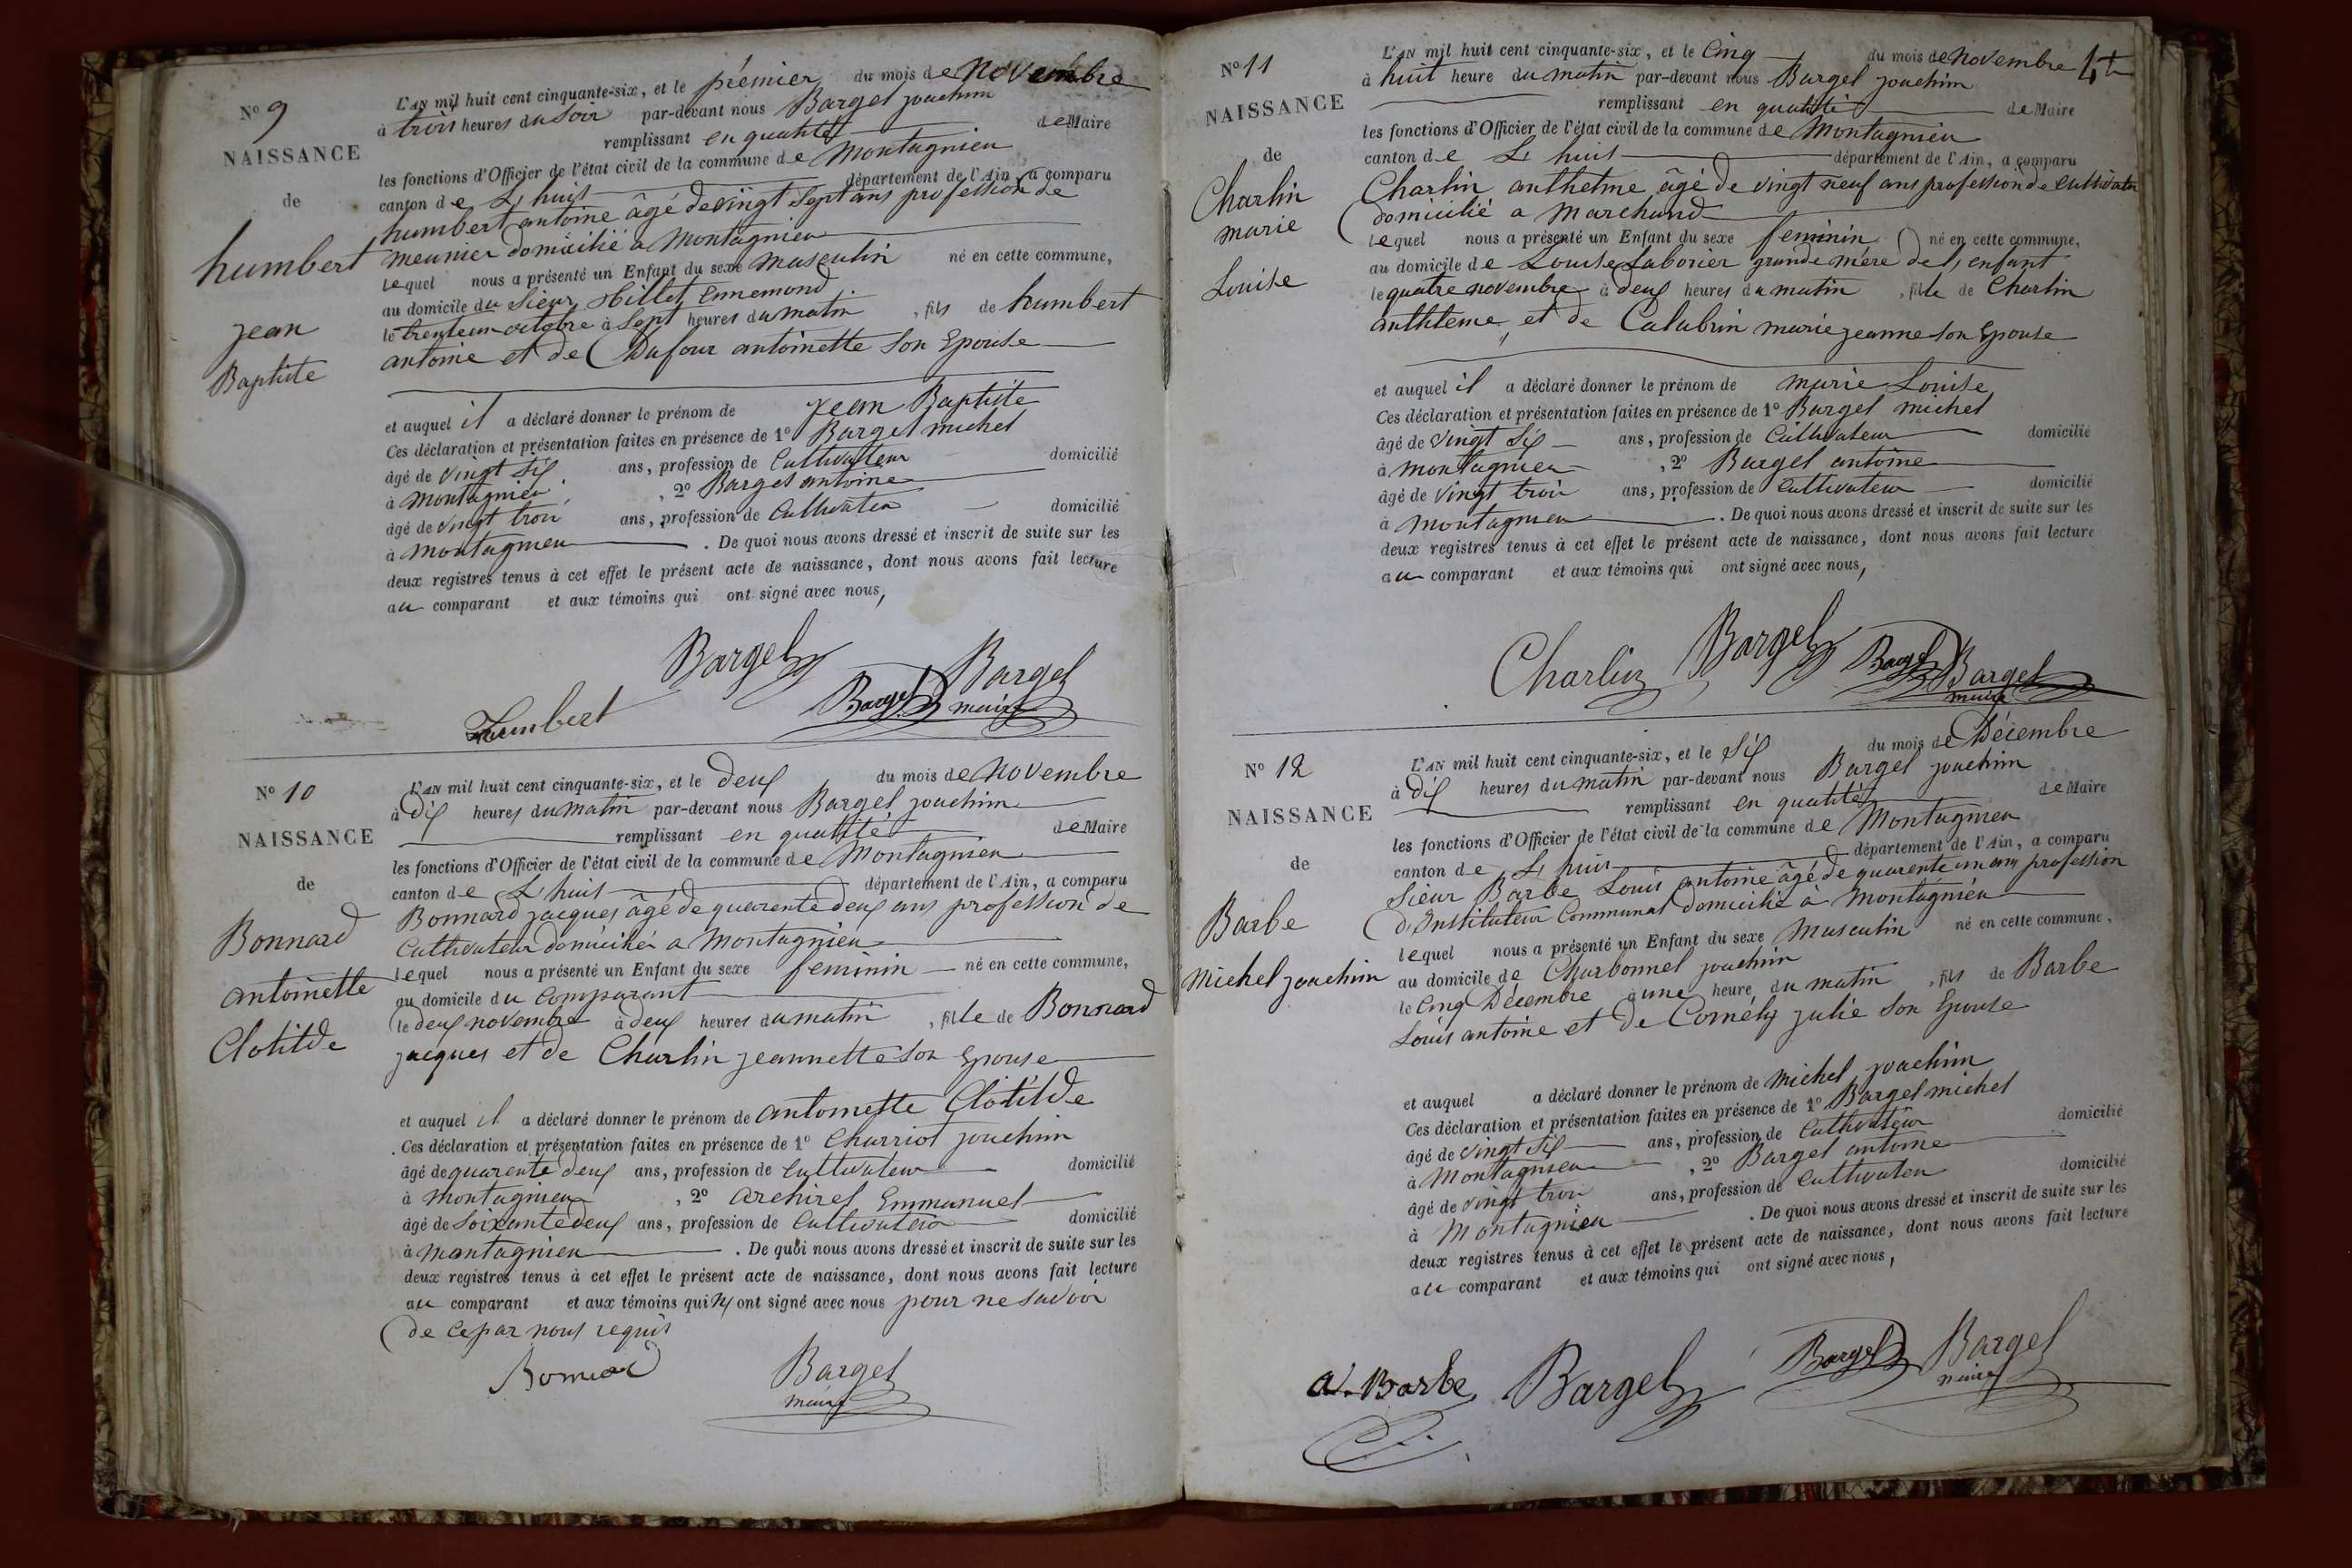 N° 9
NAISSANCE
de
humbert
jean
Baptiste
L'AN mil huit cent cinquante-six, et le prémier du mois de Novembre
à trois heures du Soir par-devant nous Bargel joachim
remplissant en qualité de Maire
les fonctions d'Officier de l'état civil de la commune de Montagnieu
canton de L, huis département de l'Ain, a comparu
humbert antoine âgé de vingt Sept ans profession de
meunier domicilié a Montagnieu
lequel nous a présenté un Enfant du sexe masculin né en cette commune,
au domicile du Sieur Millet Ennemond
le trente un octobre à Sept heures du matin, fils de humbert
antoine et de Dufour antoinette Son Epouse
et auquel il a déclaré donner le prénom de jean Baptiste
Ces déclaration et présentation faites en présence de 1° Bargel michel
âgé de vingt Six ans, profession de Cultivateur domicilié
à Montagnieu, 2° Bargel antoine
âgé de vingt trois ans, profession de Cultivateur domicilié
à Montagnieu. De quoi nous avons dressé et inscrit de suite sur les
deux registres tenus à cet effet le présent acte de naissance, dont nous avons fait lecture
au comparant et aux témoins qui ont signé avec nous,
Bargel
Bargel
Bargel
maire
humbert
N° 10
NAISSANCE
de
Bonnard
antoinette
Clotilde
L'AN mil huit cent cinquante-six, et le deux du mois de Novembre
à Dix heures du matin par-devant nous Bargel joachim
remplissant en qualité de Maire
les fonctions d'Officier de l'état civil de la commune de Montagnieu
canton de L, huis département de l'Ain, a comparu
Bonnard jacques âgé de quarente deux ans profession de
Cultivateur domicilié a Montagnieu
lequel nous a présenté un Enfant du sexe feminin né en cette commune,
au domicile du Comparant
le deux novembre à deux heures du matin, fille de Bonnard
jacques et de Charlin jeannette Son Epouse
et auquel il a déclaré donner le prénom de antoinette Clotilde
Ces déclaration et présentation faites en présence de 1° Charriot joachim
âgé de quarente deux ans, profession de Cultivateur domicilié
à Montagnieu, 2° archirel Emmanuel
âgé de Soixante deux ans, profession de Cultivateur domicilié
à Montagnieu. De quoi nous avons dressé et inscrit de suite sur les
deux registres tenus à cet effet le présent acte de naissance, dont nous avons fait lecture
au comparant et aux témoins qui n'ont signé avec nous pour ne Savoir
de Ce par nous requis
Bonnard
Bargel
maire
N° 11
NAISSANCE
de
Charlin
marie
Louise
L'AN mil huit cent cinquante-six, et le Cinq du mois de Novembre
à huit heure du matin par-devant nous Bargel joachim
remplissant en qualité de Maire
les fonctions d'Officier de l'état civil de la commune de Montagnieu
canton de L, huis département de l'Ain, a comparu
Charlin anthelme âgé de vingt neuf ans profession de Cultivateur
domicilié a Marchand
lequel nous a présenté un Enfant du sexe feminin né en cette commune,
au domicile de Louise Laborier grande mère de l, enfant
le quatre novembre à deux heures du matin, fille de Charlin
anthleme et de Calabrin marie jeanne Son Epouse
et auquel il a déclaré donner le prénom de marie Louise
Ces déclaration et présentation faites en présence de 1° Bargel michel
âgé de vingt Six ans, profession de Cultivateur domicilié
à Montagnieu, 2° Bargel antoine
âgé de vingt trois ans, profession de Cultivateur domicilié
à Montagnieu. De quoi nous avons dressé et inscrit de suite sur les
deux registres tenus à cet effet le présent acte de naissance, dont nous avons fait lecture
au comparant et aux témoins qui ont signé avec nous,
Charlin
Bargel
Bargel
Bargel
maire
N° 12
NAISSANCE
de
Barbe
Michel joachim
L'AN mil huit cent cinquante-six, et le Six du mois de Décembre
à Dix heures du matin par-devant nous Bargel joachim
remplissant en qualité de Maire
les fonctions d'Officier de l'état civil de la commune de Montagnieu
canton de L, huis département de l'Ain, a comparu
Sieur Barbe Louis antoine âgé de quarente un ans profession
d, Instituteur Communal domicilié à Montagnieu
lequel nous a présenté un Enfant du sexe Masculin né en cette commune,
au domicile de Charbonnel joachim
le Cinq Décembre à une heure du matin, fils de Barbe
Louis antoine et de Comély julie Son Epouse
et auquel a déclaré donner le prénom de Michel joachim
Ces déclaration et présentation faites en présence de 1° Bargel michel
âgé de vingt Six ans, profession de Cultivateur domicilié
à Montagnieu, 2° Bargel antoine
âgé de vingt trois ans, profession de Cultivateur domicilié
à Montagnieu. De quoi nous avons dressé et inscrit de suite sur les
deux registres tenus à cet effet le présent acte de naissance, dont nous avons fait lecture
au comparant et aux témoins qui ont signé avec nous,
a. Barbe
Bargel
Bargel
Bargel
maire